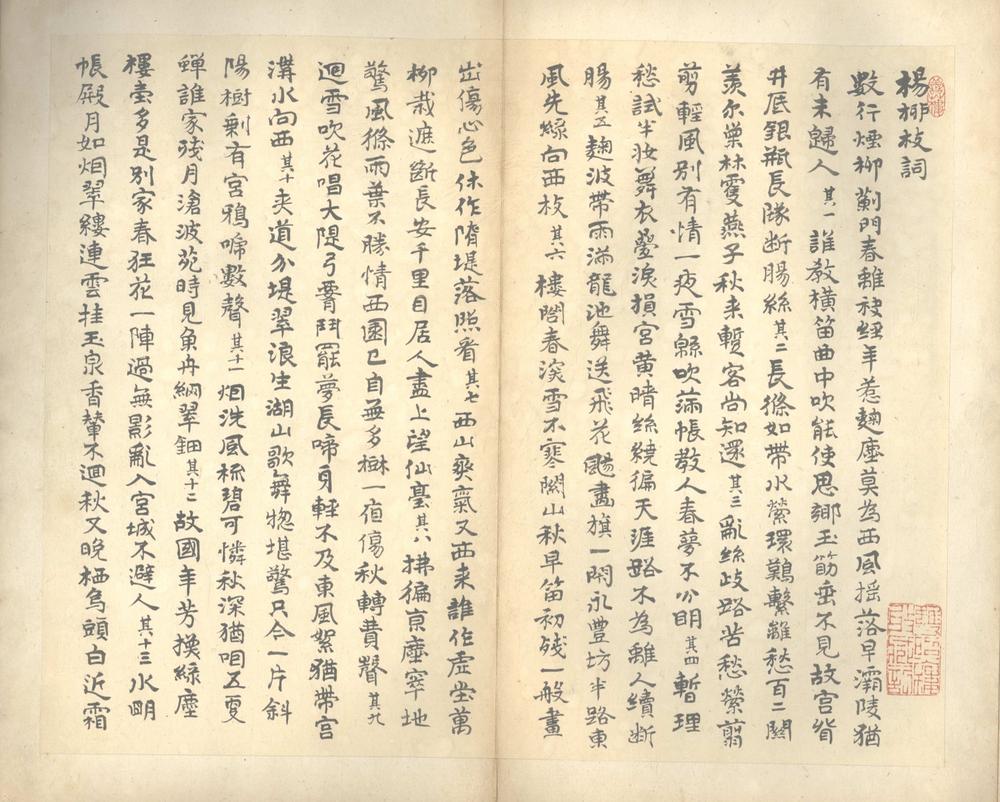 楊柳枝詞
數行煙柳薊門春離袂經年惹麴塵莫為西風搖落早灞陵猶
有未歸人其一誰教橫笛曲中吹能使思鄉玉筯垂不見故宮眢
井底銀瓶長隊断腸絲其二長條如帶水縈環難繫離愁百二關
羨尔葉林霎燕子秋来蹔客尚知還其三亂絲歧路苦愁縈翦
剪輕風別有情一夜雪緜吹滿帳教人春夢不分明其四暫理
愁試半妝舞衣疊淚損宮黄暗絲繞徧天涯路不為離人續断
腸其五麹波帶雨滿龍池舞送飛花颺畫旗一閉永豐坊半路東
風先綠向西枝其六樓閣春淡雪不寒關山秋早笛初殘一般畫
出傷心色休作隋堤落照看其七西山爽氣又西来誰作虛堂萬
柳栽遮断長安千里目居人盡上望仙臺其八拂徧京塵窣地
驚風條雨葉不勝情西園已自無多樹一值傷秋轉費聲其九
迴雪吹花唱大隄弓彎鬥罷夢長啼身輕不及東風絮猶帶宮
溝水向西其十夾道分堤翠浪生湖山歌舞惣堪驚只今一片斜
陽樹剩有宮鴉啼數聲其十一烟洗風梳碧可憐秋深猶咽五更
蟬誰家殘月滄波苑時見魚舟網翠鈿其十二故國年芳換綠塵
樓臺多是別家春狂花一陣過無影亂入宮城不避人其十三水明
帳殿月如烟翠縷連雲挂玉泉香輦不迴秋又晚栖烏頭白近霜